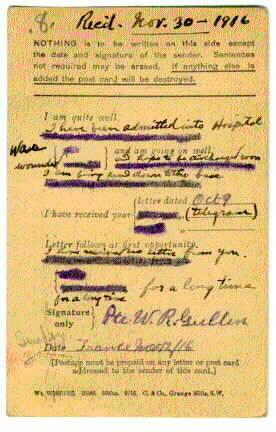 8. Recd. Nov. 30 - 1916
NOTHING is to be written on this side except
the date and signature of the sender. Sentences
not required may be erased. If anything else is
added the post card will be destroyed.
I am quite well.
I have been admitted into Hospital
Was
wounded and am going on well.
I hope to be discharged soon
I am being sent down to the base
letter dated Oct 9
I have received your telegram
Letter follows at first opportunity.
I have received no letter from you
for a long time
for a long time
Signature
only Pte W. R. Gullen
Date France Nov 12/16
[Postage must be prepaid on any letter or post card
addressed to the sender of this card.]
C. & Co., Grange Mills, S.W.